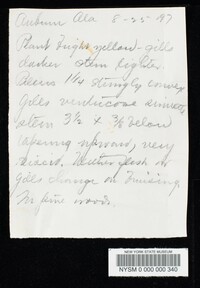 Auburn Ala 8-25-97
Plant bright yellow - gills
darker stem lighter.
Pileus 1¼ strongly convex
Gills ventricose
stem 3½ x ⅜ below
tapering upward, very
viscid. Neither flesh or
gills change on bruising
In pine woods.
NEW YORK STATE MUSEUM
NYSM 0 000 000 340